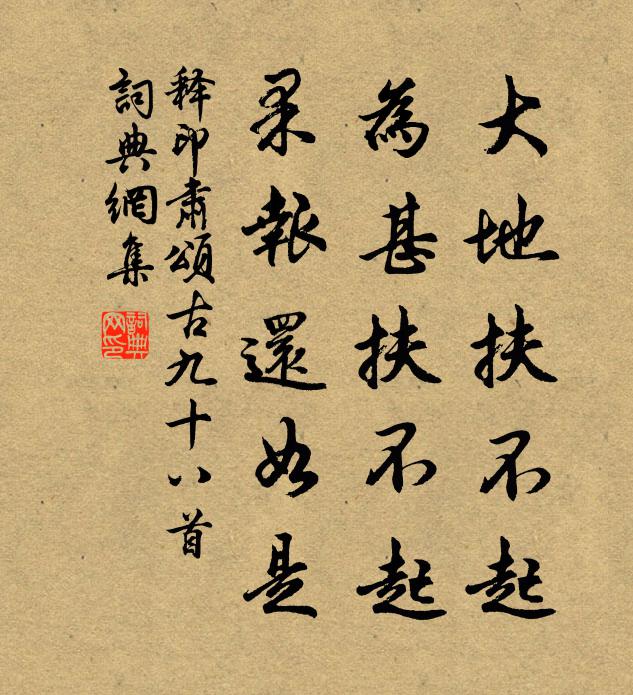 大地扶不起
為甚扶不起
果報還如是
释印肅頌古九十八首
詞典網集
詞典网印